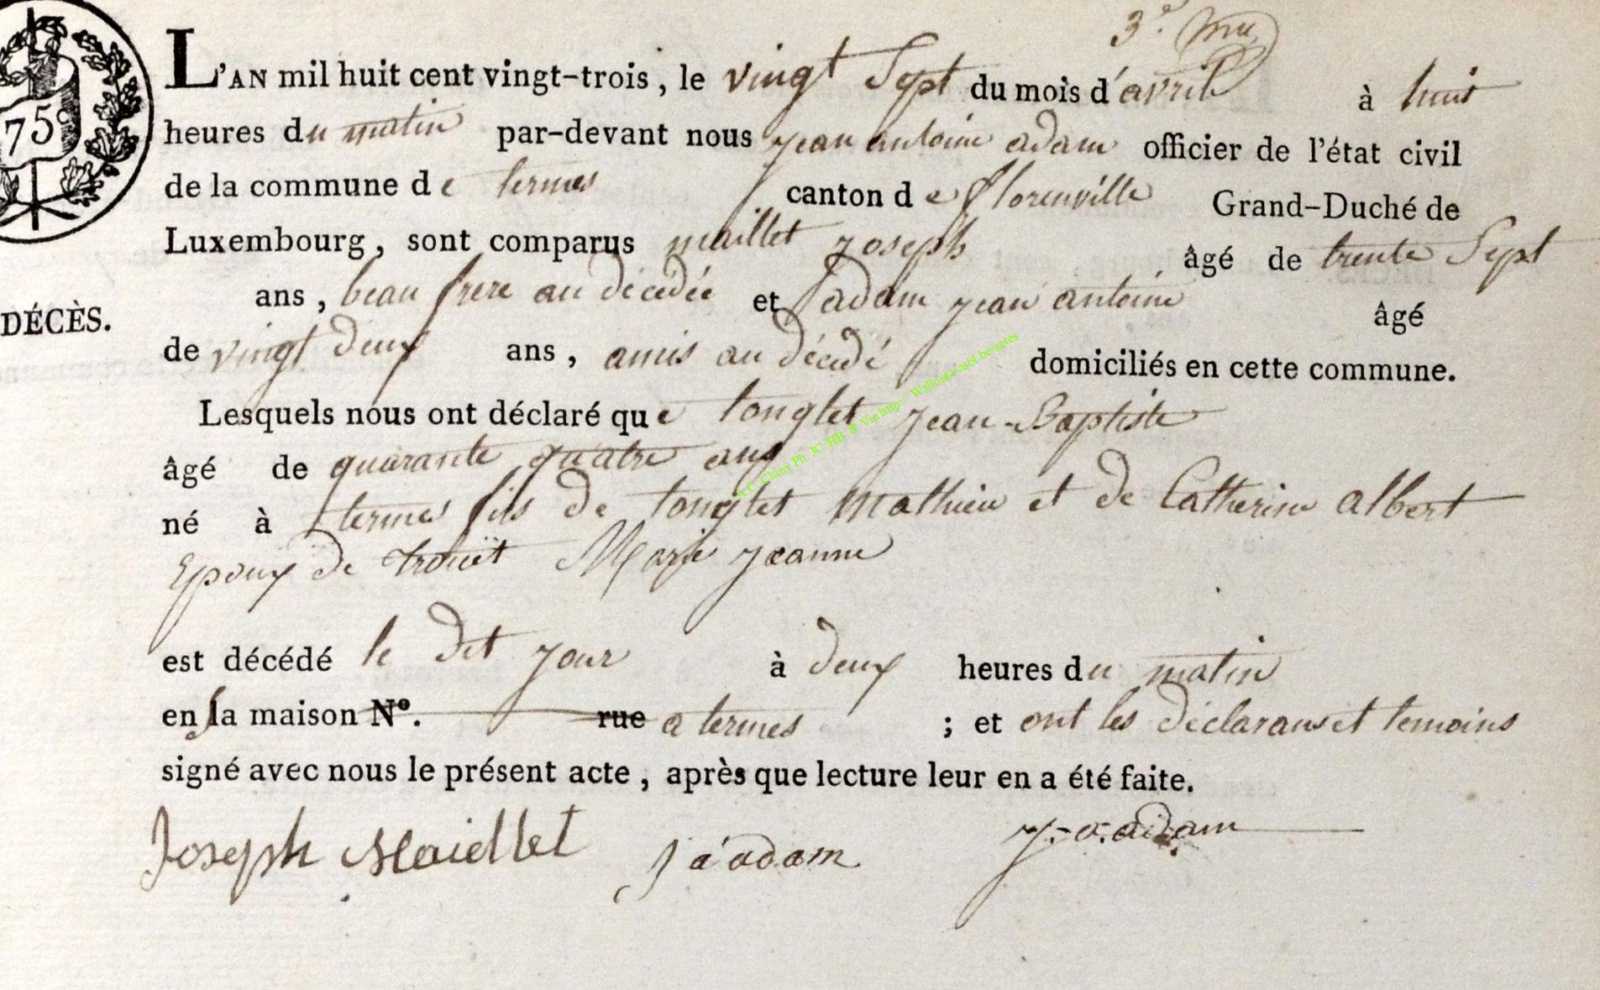 3.e
75c
L'AN mil huit cent vingt-trois, le vingt Sept du mois d'avril à huit
heures du matin par-devant nous jean antoine adam officier de l'état civil
de la commune de termes canton de florenville Grand-Duché de
Luxembourg, sont comparus maillet joseph âgé de trente Sept
ans, beau frere au décédée et adam jean antoine âgé
DÉCÈS.
de vingt deux ans, amis au décédé domiciliés en cette commune.
Lesquels nous ont déclaré que tonglet jean-Baptiste
âgé de quarante quatre ans
né à termes fils de tonglet Mathieu et de Catherine albert
Epoux de trouët Marie jeanne
est décédé le dit jour à deux heures du matin
en sa maison N°. rue a termes ; et ont les déclarans et temoins
signé avec nous le présent acte, après que lecture leur en a été faite.
Joseph Maiellet j a adam j. a. adam